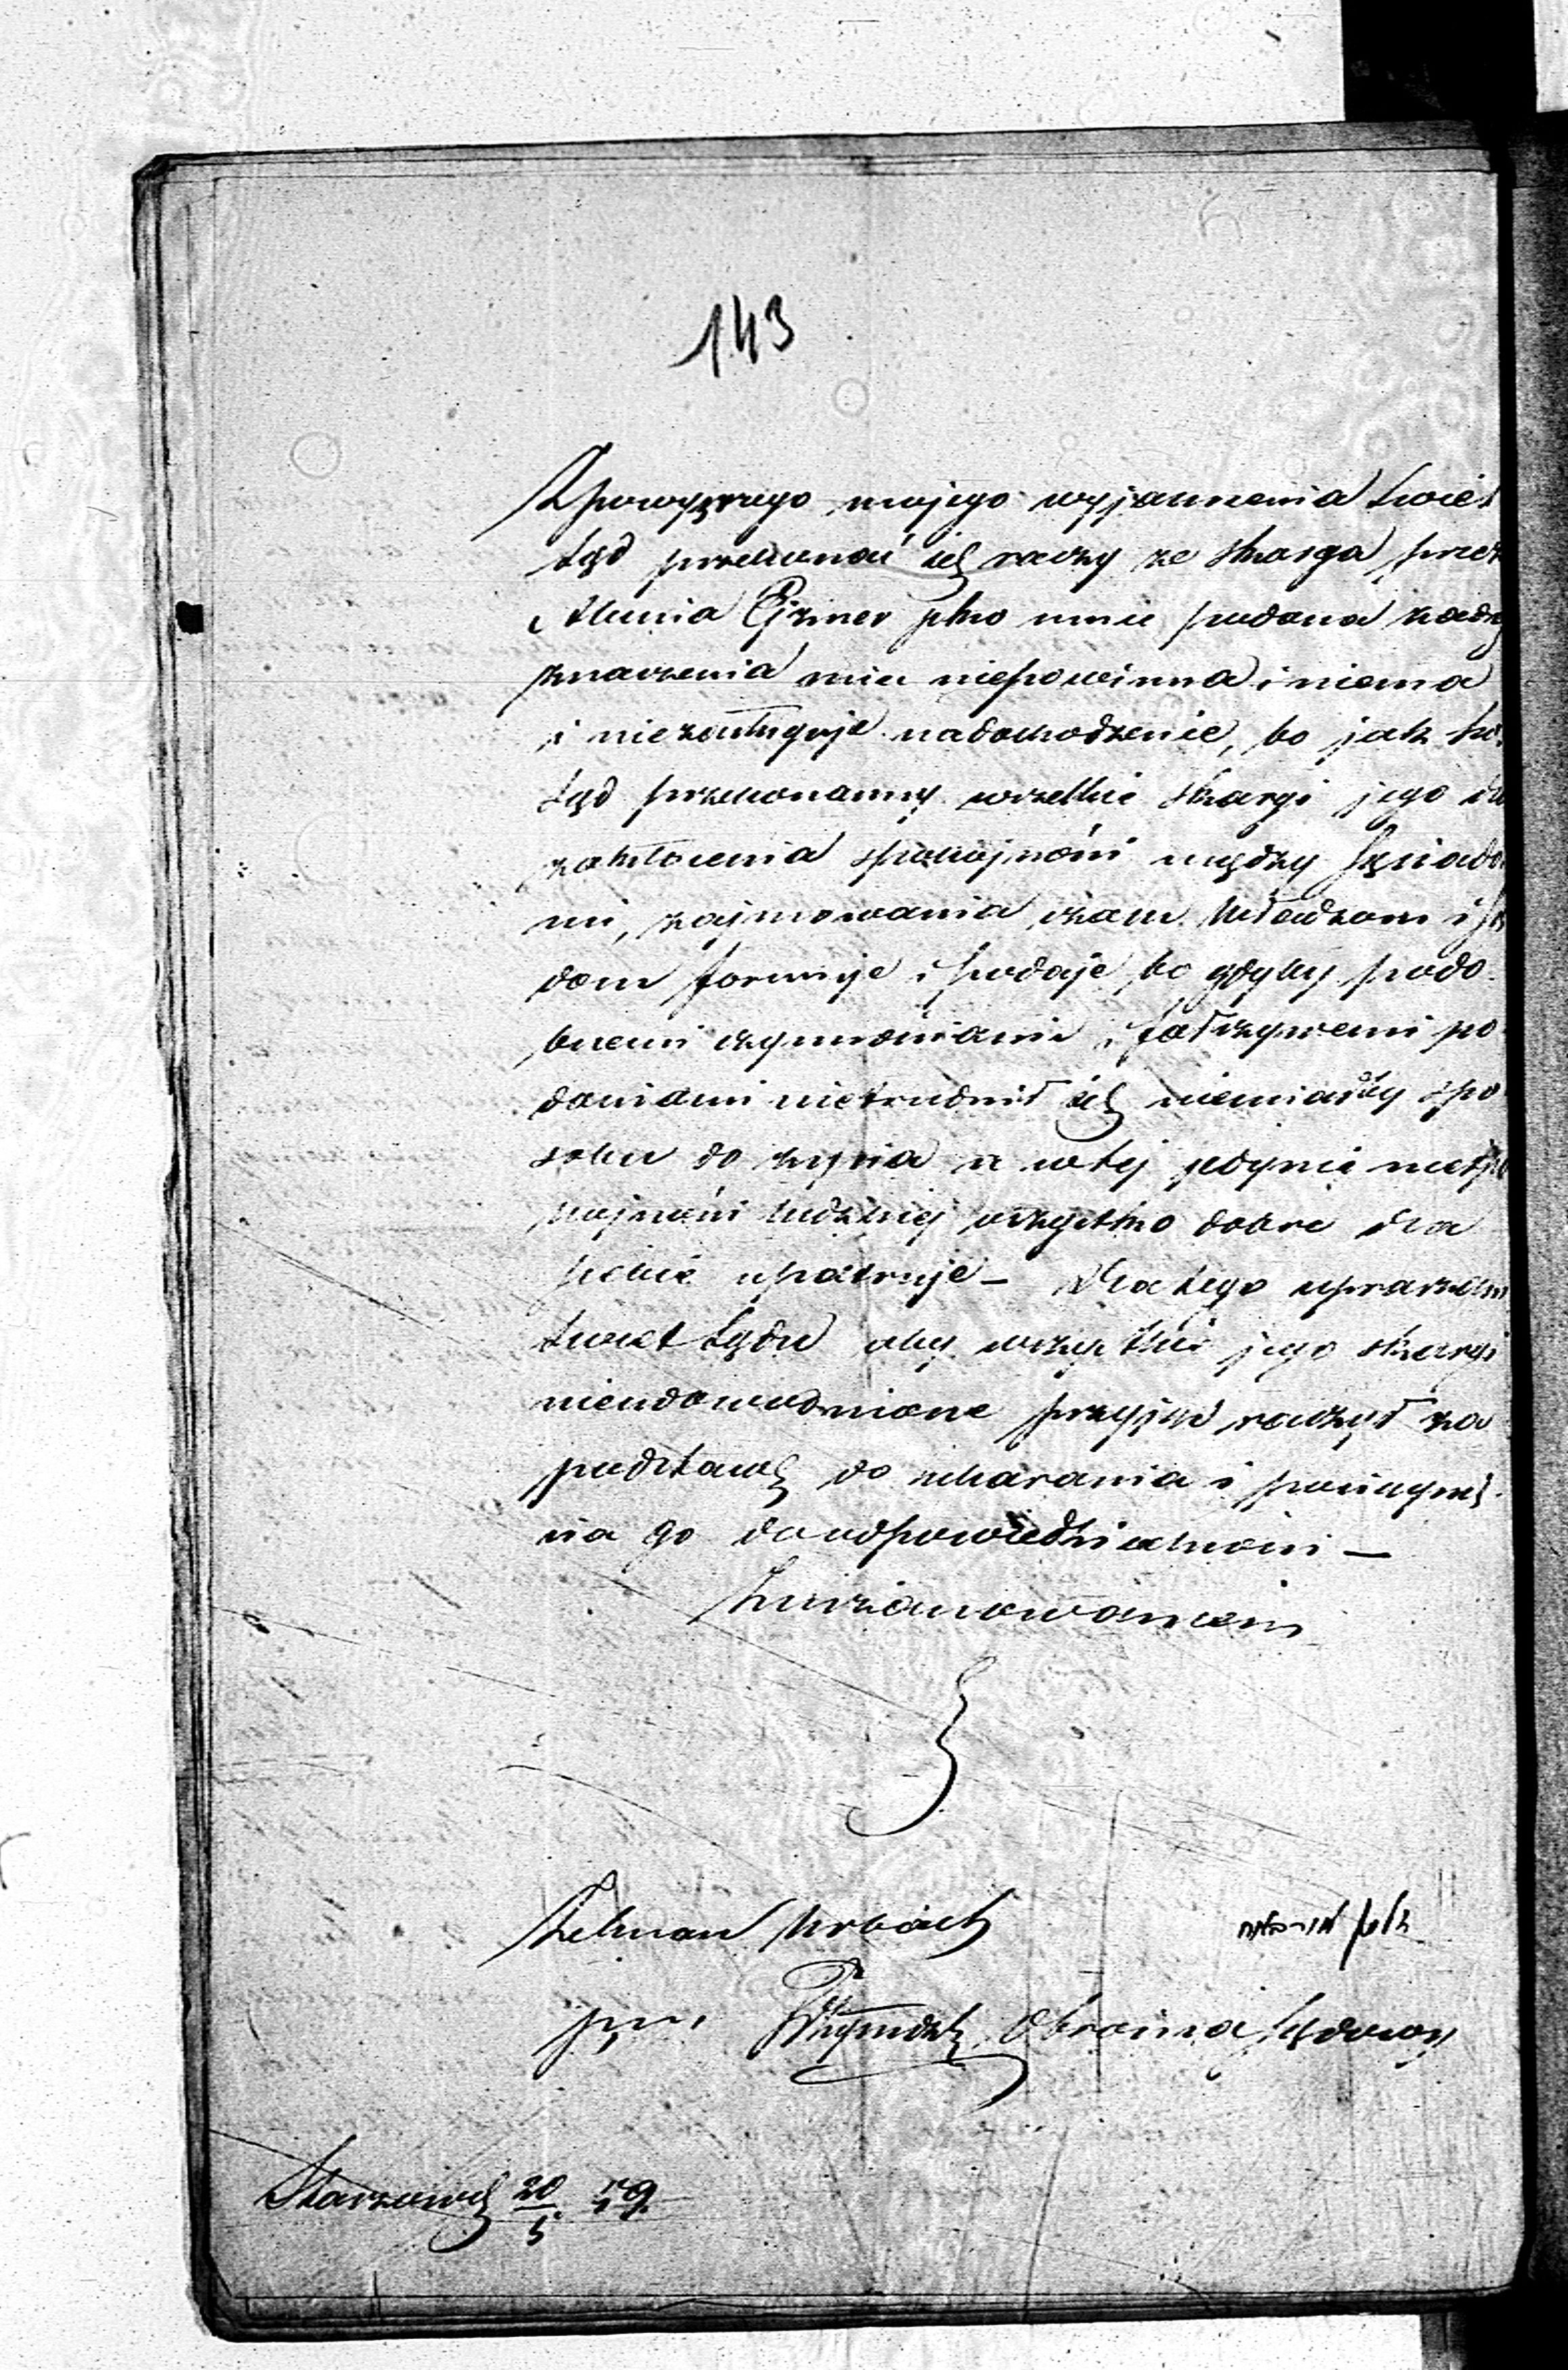 143
Z powyzszego mojego wyjasnienia Swiet
Sąd przekonać się raczy ze skarga przez
Munia Ejzner pko mnie podana zadn
znaczenia miec niepowinna i niema
i niezasługuje nadochodzenie, bo jak Sw.
Sąd przekonanny wszelkie skargi jego dla
zakłocenia spokojności między Sąsiada
mi, zajmowania czasu Władzom i Są
dom formuje i podaje bo gdyby podo
bnemi czynnościami i fałszywemi po
daniami nietrudnił się niemiałby spo
sobu do zycia a w tej jedynie niespo
kojności ludzkiej wszystko dobre dla
siebie upatruje – Dla tego upraszam
Swiet Sądu aby wszystkie jego skargi
nieudowodnione przyjąć raczył za
podstawę do ukarania i pociągnię
nia go do odpowiedzialności –
Z uszanowaniem
Zelman Urbach
ppr. Obronca Sądowy
20/5 59